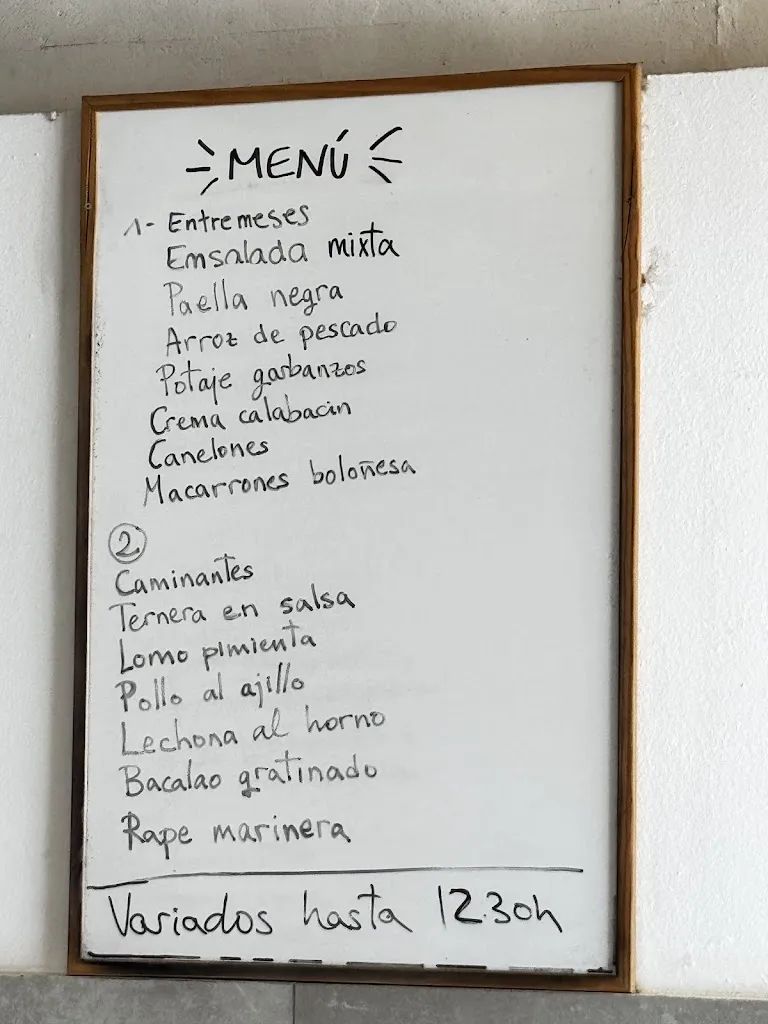 MENÚ
1- Entremeses
Ensalada mixta
Paella negra
Arroz de pescado
Potaje garbanzos
Crema calabacin
Canelones
Macarrones boloñesa
2
Caminantes
Ternera en salsa
Lomo pimienta
Pollo al ajillo
Lechona al horno
Bacalao gratinado
Rape marinera
Variados hasta 12.30h